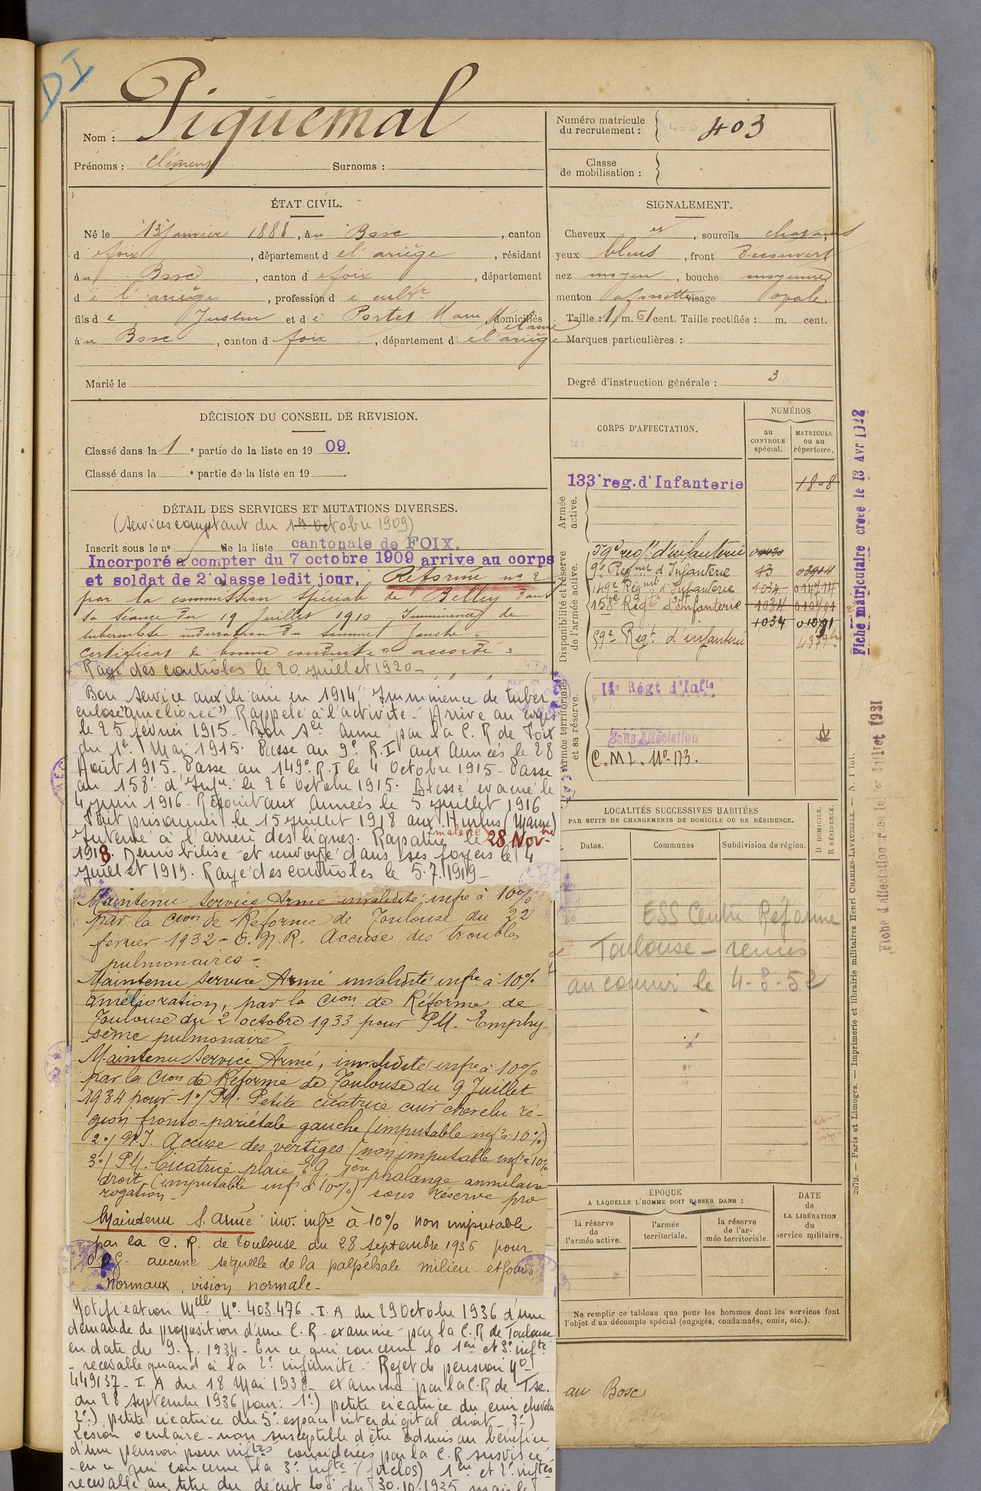 DI
Nom : Piquemal
Prénoms : Clément Surnoms :
Numéro matricule du recrutement : 403
Classe de mobilisation :
ÉTAT CIVIL.
Né le 13 janvier 1888, à u Bosc, canton
d e foix, département d e l'ariège, résidant
à u Bosc, canton d e foix, département
d e l'ariège, profession d e cultr
fils d e Justin et d e Portet Marie Mélanie, domiciliés
à u Bosc, canton d foix, département d e l'ariège
Marié le
SIGNALEMENT.
Cheveux et, sourcils chatains
yeux bleus, front découvert
nez moyen, bouche moyenne
menton à fossette visage ovale.
Taille : 1 m. 61 cent. Taille rectifiée : m. cent.
Marques particulières :
Degré d'instruction générale : 3
DÉCISION DU CONSEIL DE REVISION.
Classé dans la 1e partie de la liste en 19 09.
Classé dans la e partie de la liste en 19
DÉTAIL DES SERVICES ET MUTATIONS DIVERSES.
(Services comptant du 1er octobre 1909)
Inscrit sous le n° de la liste cantonale de FOIX.
Incorporé à compter du 7 octobre 1909 arrive au corps
et soldat de 2e classe ledit jour. Réformé n° 2
par la commission spéciale de Belley dans
sa séance du 19 juillet 1910 Imminence de
tuberculose induration du sommet gauche.
Certificat de bonne conduite accordé.
Rayé des contrôles le 20 juillet 1920
Bon service auxiliaire en 1914 "Imminence de tuber
culose améliorée" Rappelé à l'activité - Arrivé au corps
le 25 février 1915 - Bon sce armé par la C. R de Foix
du 1er Mai 1915. Passé au 9e R.I aux Armées le 28
Août 1915. Passé au 149e R.I le 4 octobre 1915 - Passé
au 158e d'Infie le 26 octobre 1915. Blessé évacué le
4 juin 1916 - Rejoint aux Armées le 5 juillet 1916
Fait prisonnier le 15 juillet 1918 aux Hurlus (Marne)
Interné à l'arrière des lignes. Rapatrié malade le 28 Novbre
1918. Démobilisé et renvoyé dans ses foyers le 4
juillet 1919. Rayé des contrôles le 5.7.1919 -
Maintenu Service Armé invalidité infre à 10%
par la Cion de Réforme de Toulouse du 22
février 1932 - C.N.R. Accuse des troubles
pulmonaires -
Maintenu Service Armé invalidité infre à 10%
amélioration, par la Cion de Réforme de
Toulouse du 2 octobre 1933 pour P.M. Emphy-
sème pulmonaire
Maintenu Service Armé, invalidité infre à 10%
par la Cion de Réforme de Toulouse du 9 Juillet
1934 pour 1°/ P.M. Petite cicatrice cuir chevelu ré-
gion fronto-pariétale gauche (imputable infre 10%)
2°/ N.I. Accuse des vertiges (non imputable infre à 10%
3°/ P.M. Cicatrice plaie 1ère phalange annulaire
droit (imputable infre à 10%) sous réserve pro
rogation -
Maintenu S. armé inv. infre à 10% non imputable
par la C. R. de Toulouse du 28 septembre 1936 pour
aucune séquelle de la palpébale milieu et fonds
normaux, vision normale -
Notification Melle N° 403.476 - I.A du 29 Octobre 1936 d'une
demande de proposition d'une C.R. examiné par la C.R de Toulouse
en date du 9.7.1934 - En ce qui concerne la 1ère et 3e infté
- recevable quand à la 2e infirmité - Rejet de pension N°
449137 - I.A du 18 Mai 1938 - examiné par la C.R de Tse.
du 28 septembre 1936 pour : 1°) petite cicatrice du cuir chevelu
2°) petite cicatrice du 5e espace interdigital droit - 3°)
Lésion oculaire - non susceptible d'être admis au bénéfice
d'une pension pour inftés considérées par la C.R susvisée
- en ce qui concerne la 3e infté (forclos) 1ère et 2e inftés
recevable au titre du décret loi du 30.10.1935 mais le
CORPS D'AFFECTATION.
NUMÉROS
au CONTRÔLE spécial.
MATRICULE ou au répertoire.
Armée active.
133e reg. d'Infanterie 1808
Disponibilité et réserve de l'armée active.
59e regt d'infanterie
9e Regmt d'Infanterie 43
149e Regmt d'Infanterie 1034
158e Regt d'Infanterie 1034
1034
59e Regt d'infanterie
Armée territoriale et sa réserve.
Regt d'Infie
Sans Affectation
C.M.I. N° 173.
LOCALITÉS SUCCESSIVES HABITÉES
PAR SUITE DE CHANGEMENTS DE DOMICILE OU DE RÉSIDENCE.
Dates. Communes Subdivision de région. D. DOMICILE. R RÉSIDENCE.
ESS Centre Réforme
Toulouse - remis
au courrier le 4-8-52
ÉPOQUE
A LAQUELLE L'HOMME DOIT PASSER DANS :
la réserve de l'armée active.
l'armée territoriale.
la réserve de l'armée territoriale.
DATE de LA LIBÉRATION du service militaire.
Ne remplir ce tableau que pour les hommes dont les services font
l'objet d'un décompte spécial (engagés, condamnés, omis, etc.).
au Bosc
Fiche matriculaire créée le 13 Avr 1922
Fiche d'affectation créée le juillet 1921
2079. — Paris et Limoges. — Imprimerie et librairie militaires Henri CHARLES-LAVAUZELLE.